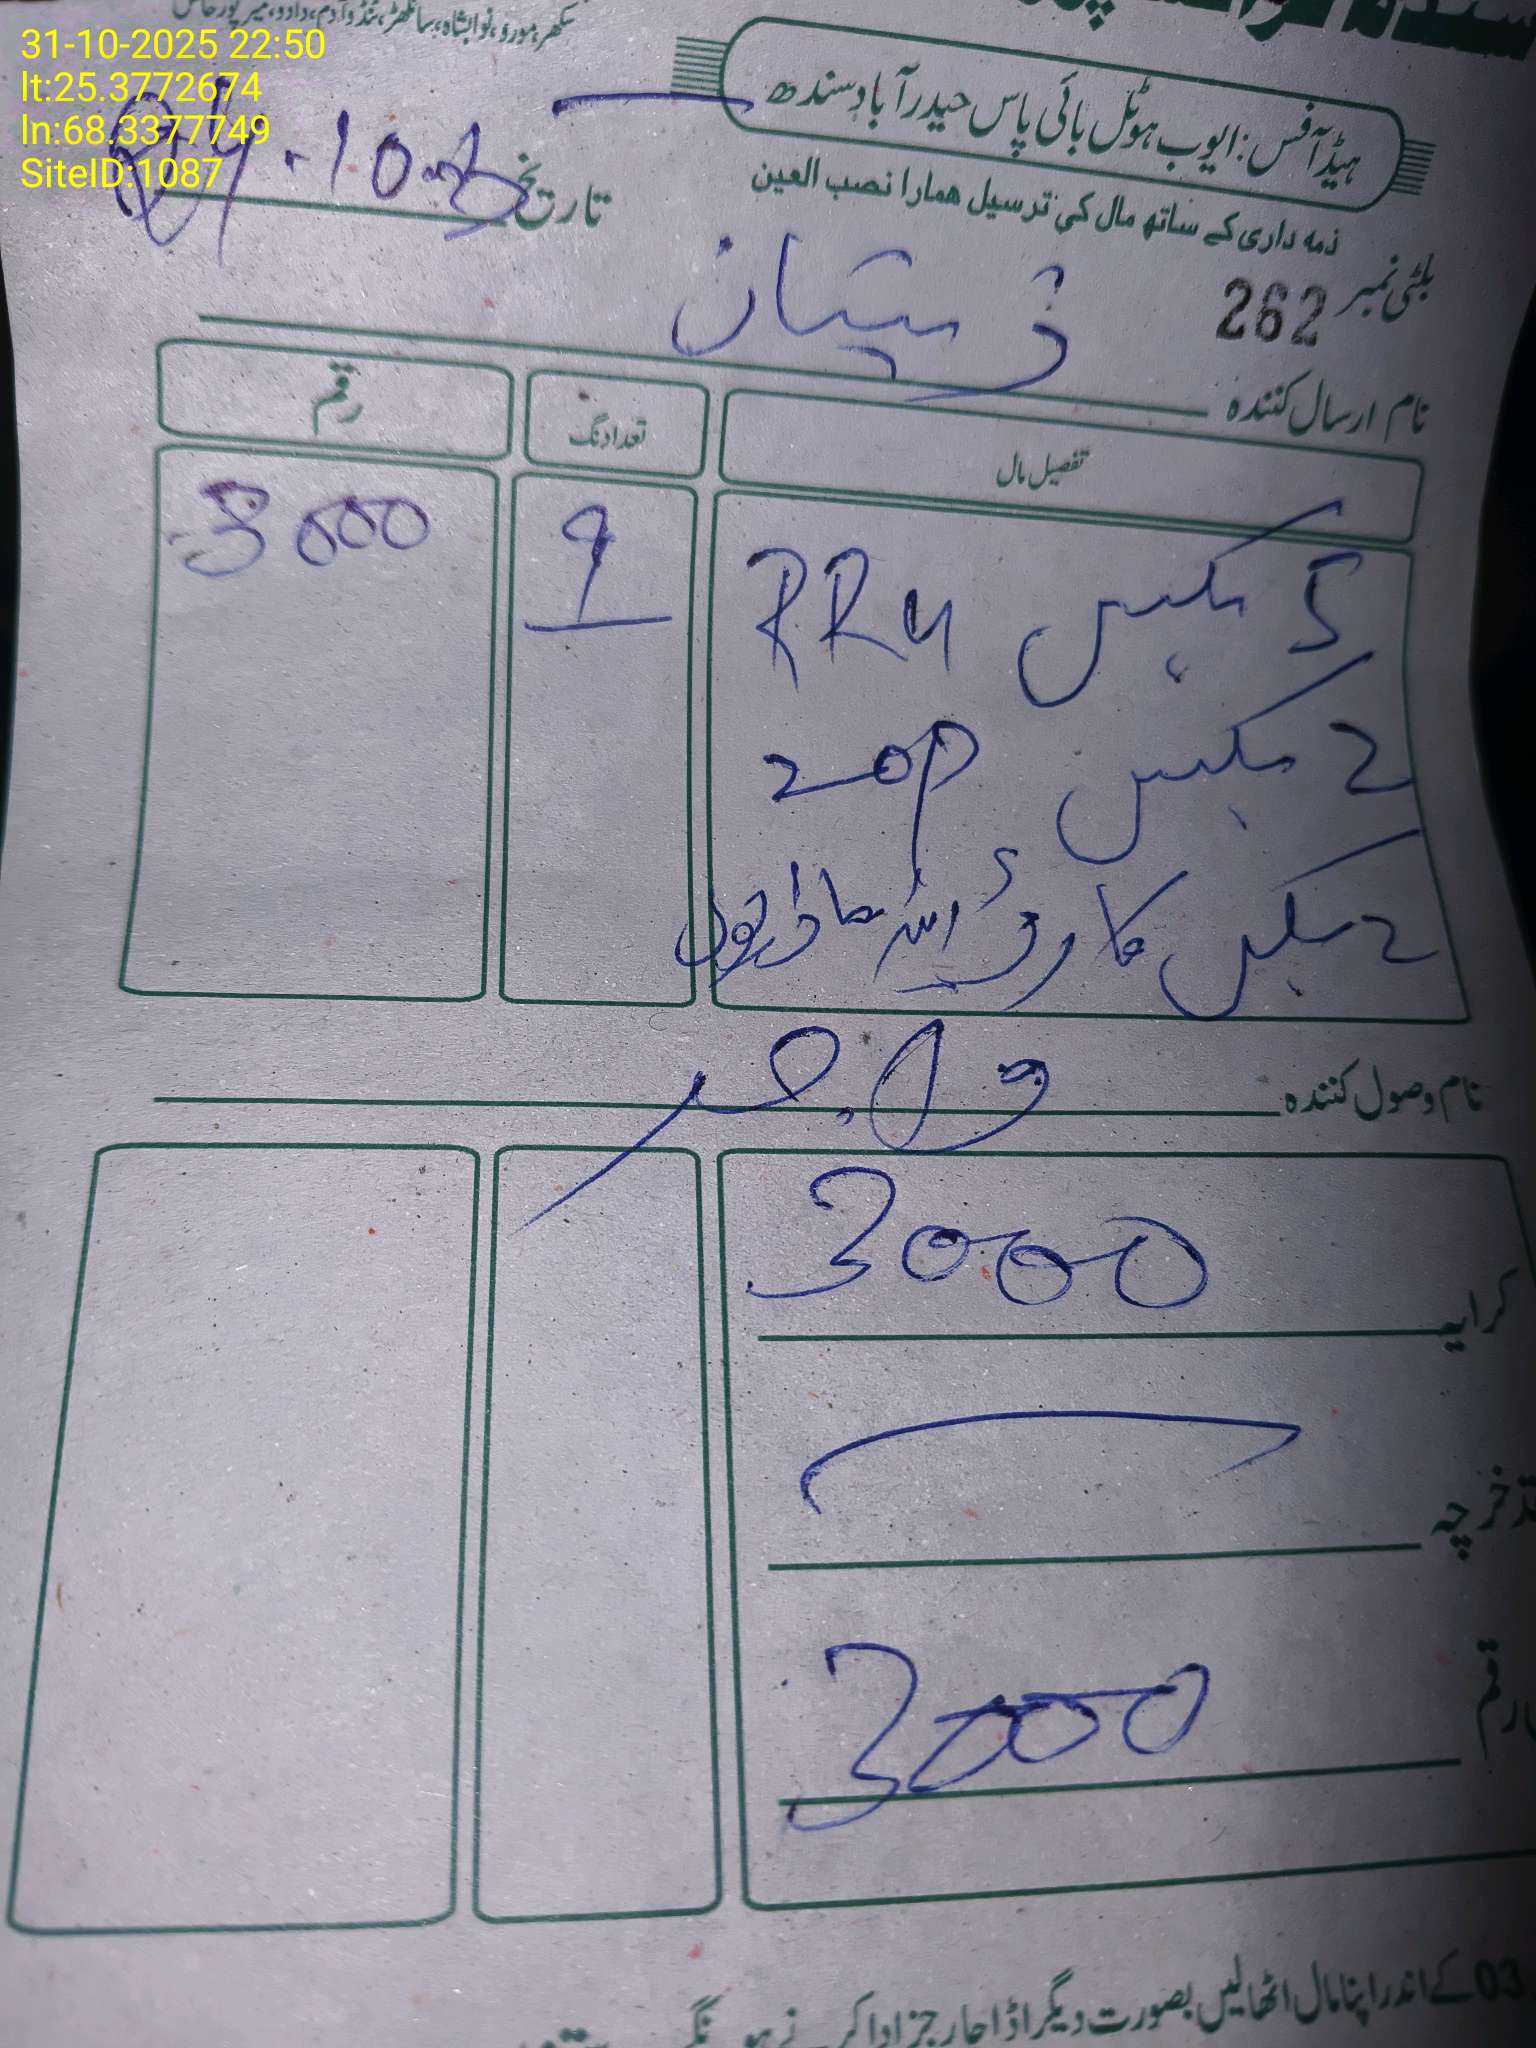 31-10-2025 22:50
lt:25.3772674
ln:68.3377749
SiteID:1087
سکھر، مورو، نوابشاہ، سانگھڑ، ٹنڈوآدم، دادو، میرپورخاص
ہیڈآفس: ایوب ہوٹل بائی پاس حیدرآباد سندھ
ذمہ داری کے ساتھ مال کی ترسیل ھمارا نصب العین
تاریخ
بلٹی نمبر 262
نام ارسال کنندہ
تفصیل مال
تعداد نگ
رقم
5 بکس RRU
9
3000
2 بکس
2 بکس کا
نام وصول کنندہ
کرایہ 3000
خرچہ
رقم 3000
03 کے اندر اپنا مال اٹھالیں بصورت دیگر اڈا چارجز ادا کرنے ہونگے